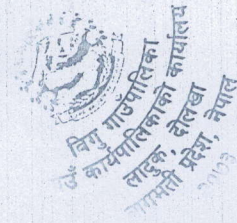 विगु गाउँपालिका
गाउँ कार्यपालिकाको कार्यालय
लादुक, दोलखा
बागमती प्रदेश, नेपाल